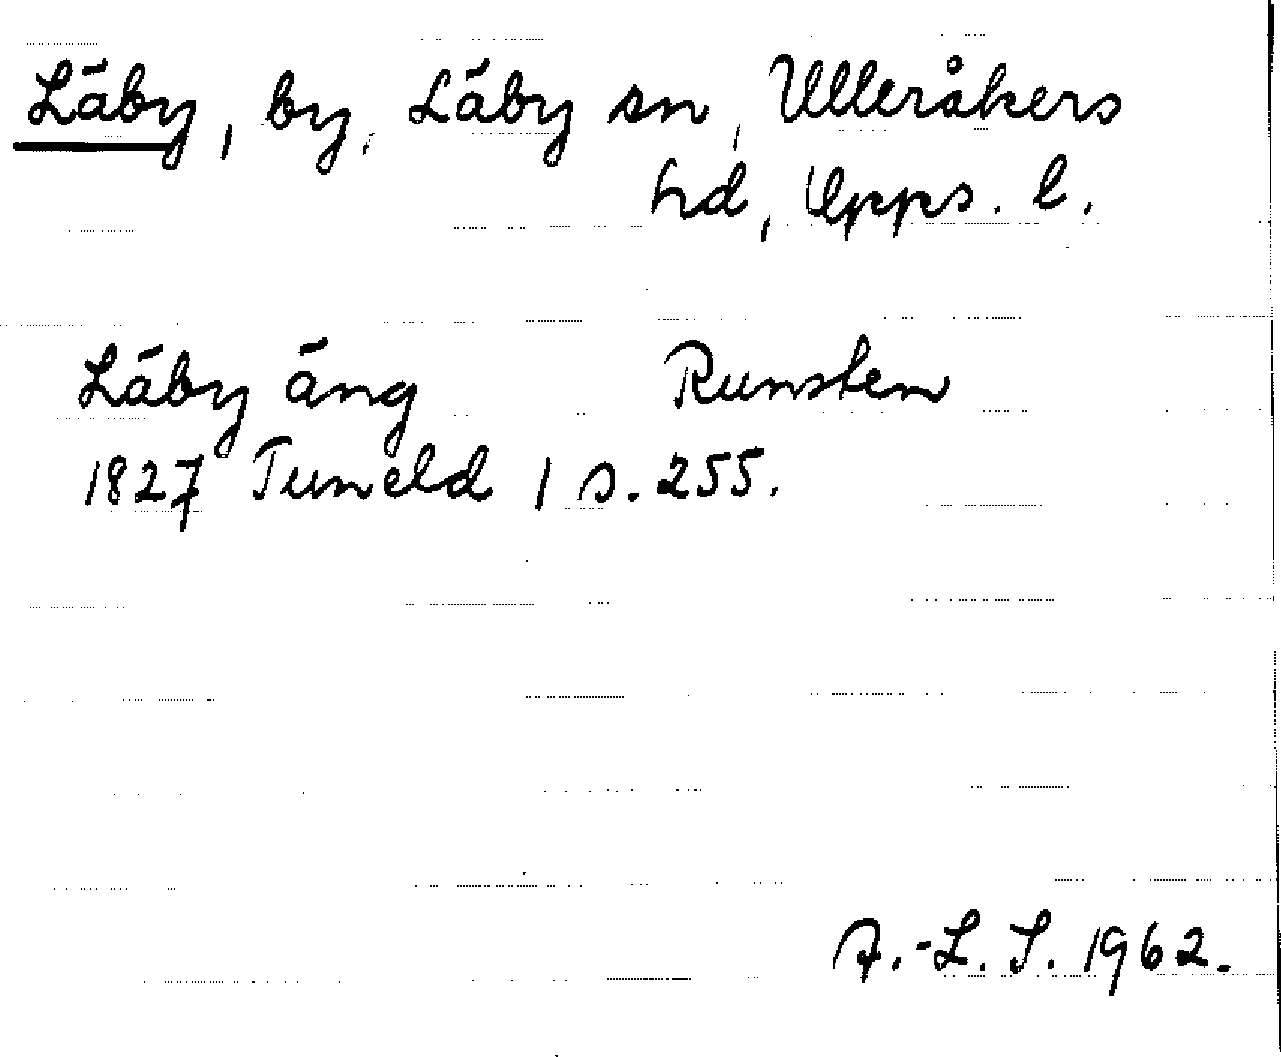 Läby, by, Läby sn, Ulleråkers
hd, Upps. l.
Läby äng Runsten
1827 Tuneld 1 s. 255.
A.-L. S. 1962.